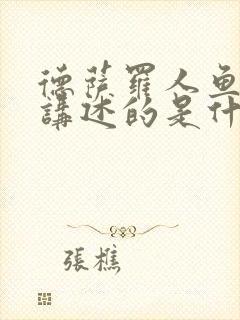 德薩羅人魚
講述的是什
張樵